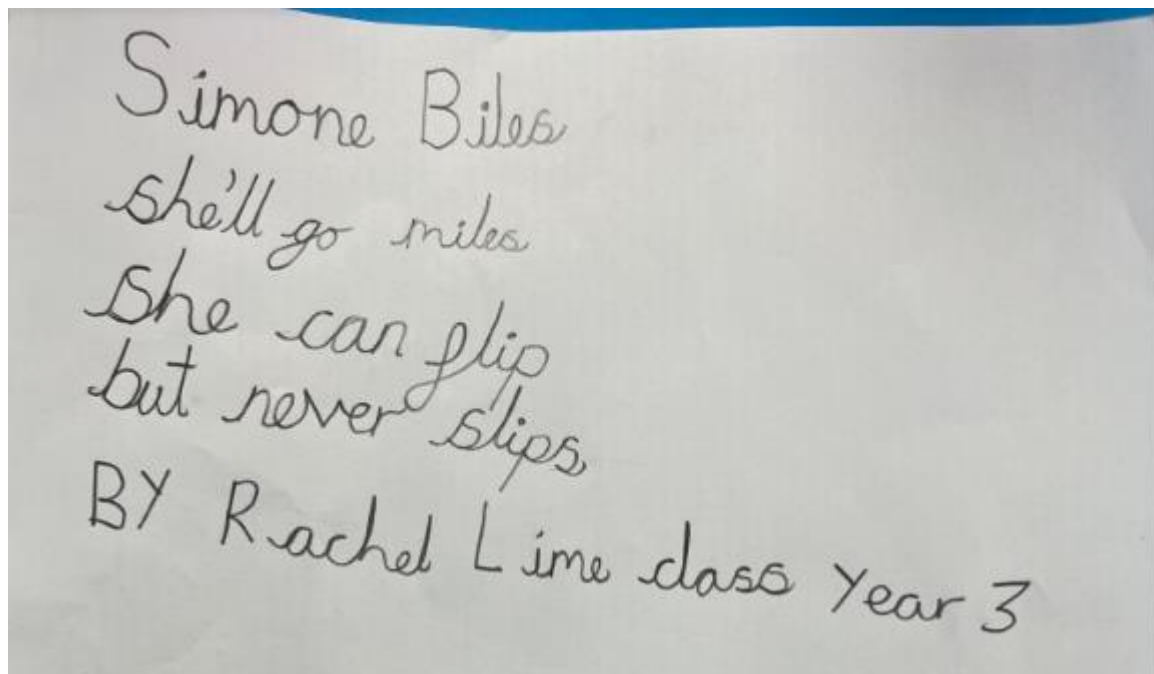 Simone Biles
she'll go miles
she can flip
but never slips
BY Rachel Lime class Year 3